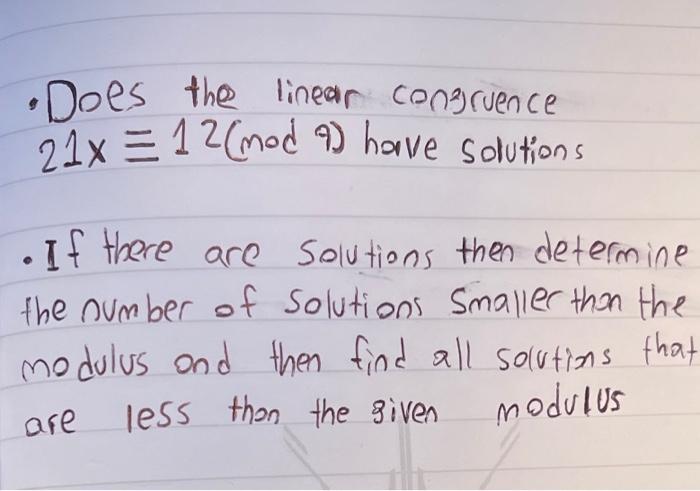 •Does the linear congruence
21x ≡ 12(mod 9) have solutions
•If there are solutions then determine
the number of solutions smaller than the
modulus and then find all solutions that
are less than the given modulus